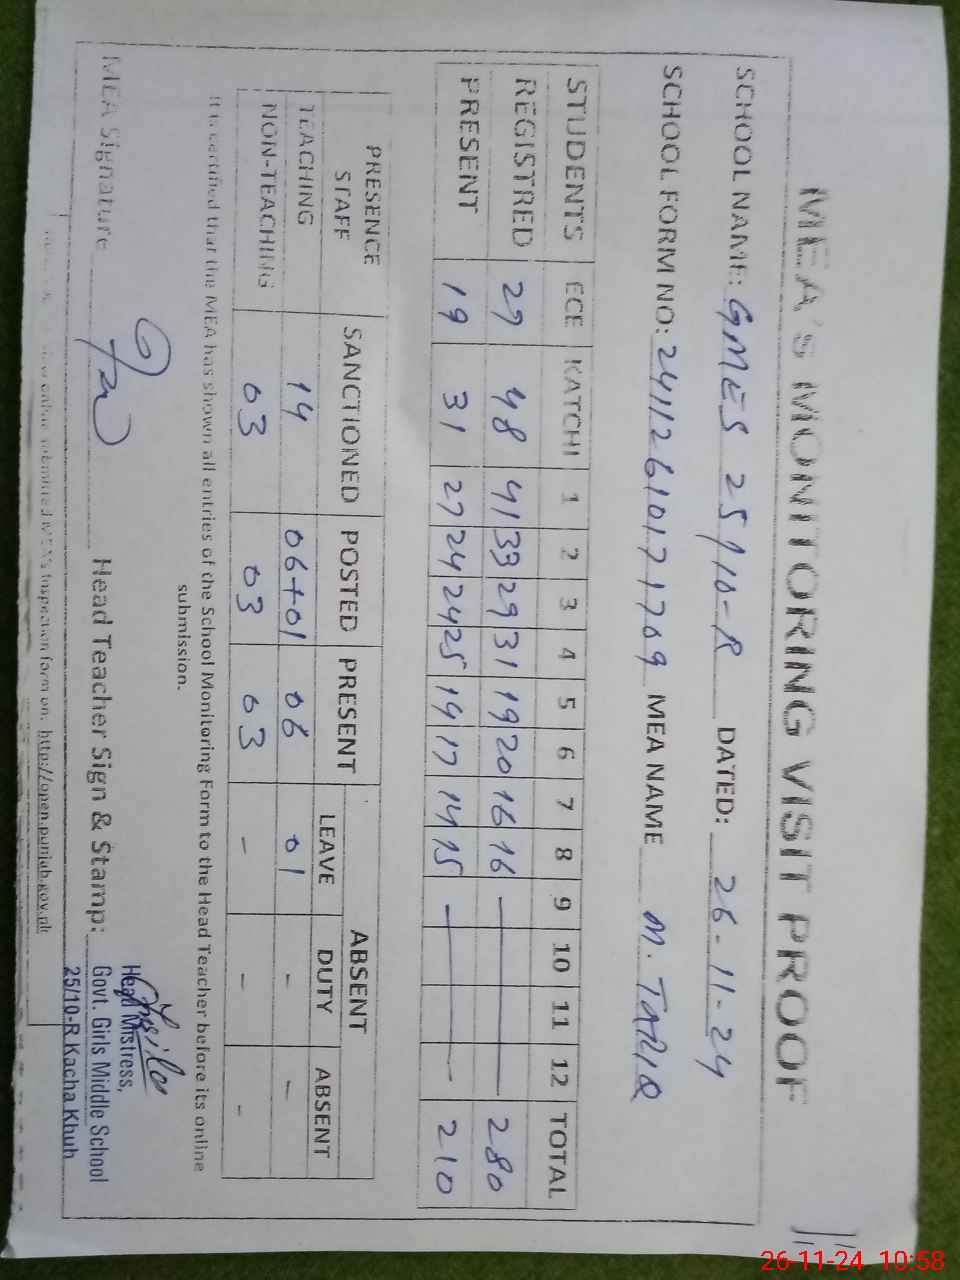 MEA'S MONITORING VISIT PROOF
SCHOOL NAME: GMES 25/10-R DATED: 26-11-24
SCHOOL FORM NO: 2411261017 1709 MEA NAME M. TARIQ
STUDENTS ECE KATCHI 1 2 3 4 5 6 7 8 9 10 11 12 TOTAL
REGISTRED 29 48 41 33 29 31 19 20 16 16 — 280
PRESENT 19 31 27 24 24 25 14 17 14 15 — 210
PRESENCE STAFF SANCTIONED POSTED PRESENT ABSENT
LEAVE DUTY ABSENT
TEACHING 14 06+01 06 01 - -
NON-TEACHING 03 03 03 - - -
It is certified that the MEA has shown all entries of the School Monitoring Form to the Head Teacher before its online
submission.
MEA Signature Head Teacher Sign & Stamp:
Head Mistress,
Govt. Girls Middle School
25/10-R Kacha Khuh
view online submitted MEA's Inspection form on: http://open.punjab.gov.pk
26-11-24 10:58